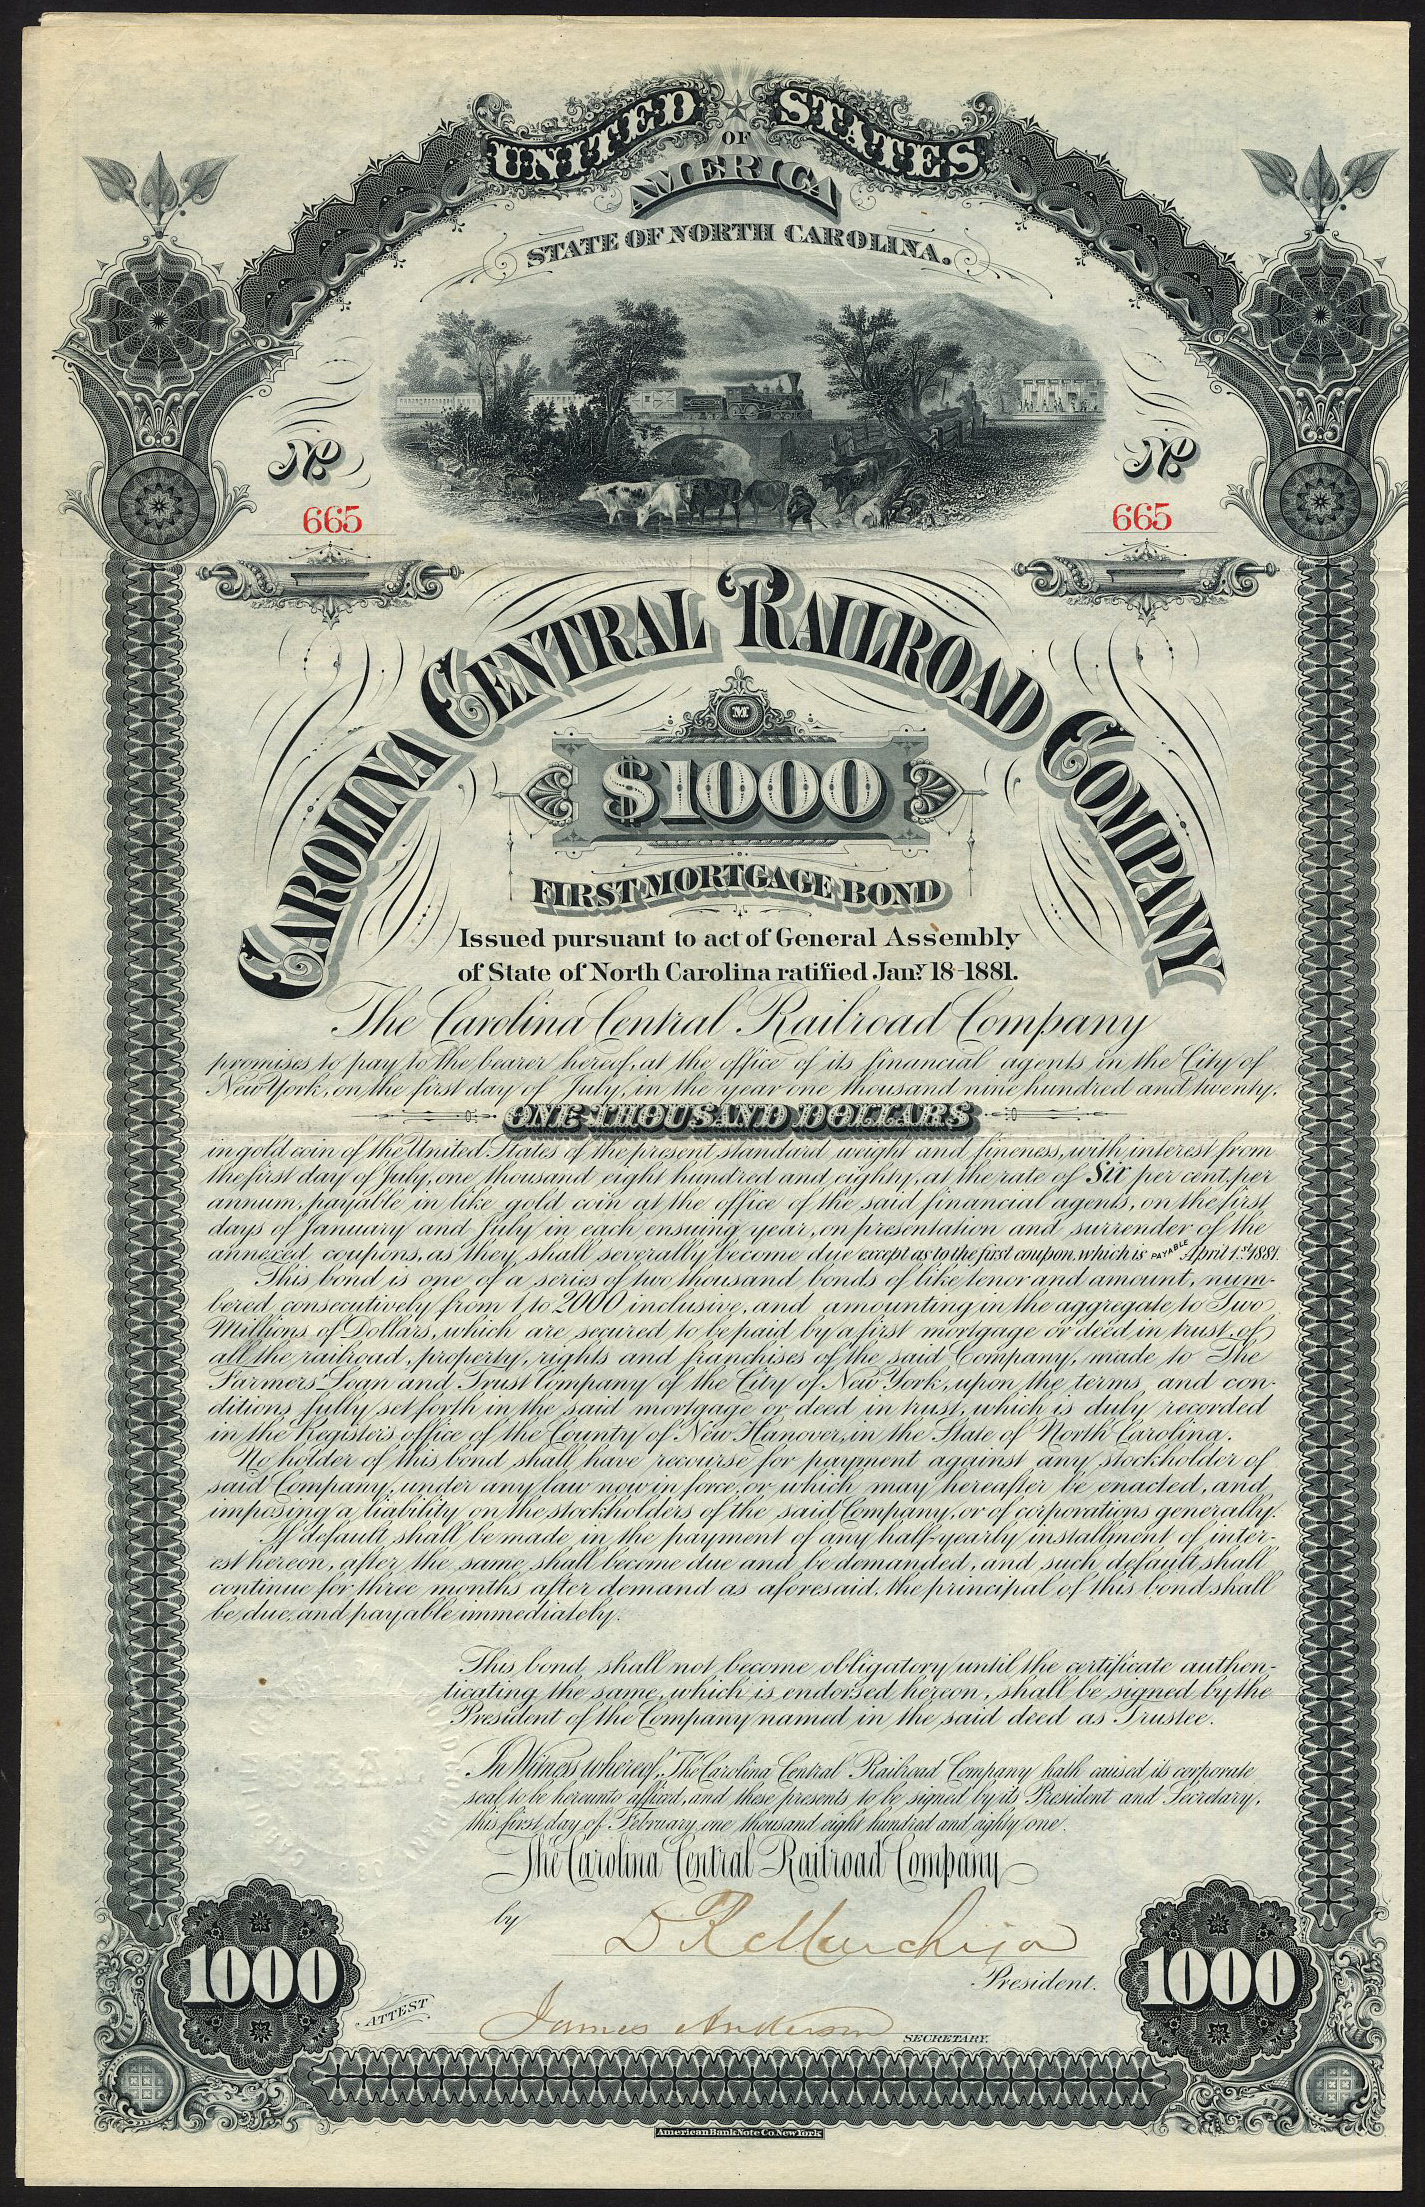 UNITED STATES
OF
AMERICA
STATE OF NORTH CAROLINA.
No No
665 665
CAROLINA CENTRAL RAILROAD COMPANY
M
$1000
FIRST MORTGAGE BOND
Issued pursuant to act of General Assembly
of State of North Carolina ratified Jany. 18-1881.
The Carolina Central Railroad Company
promises to pay to the bearer hereof, at the office of its financial agents in the City of
New York, on the first day of July, in the year one thousand nine hundred and twenty,
ONE THOUSAND DOLLARS
in gold coin of the United States of the present standard weight and fineness, with interest from
the first day of July, one thousand eight hundred and eighty, at the rate of Six per cent. per
annum, payable in like gold coin at the office of the said financial agents, on the first
days of January and July in each ensuing year, on presentation and surrender of the
annexed coupons, as they shall severally become due except as to the first coupon, which is PAYABLE April 1st 1881.
This bond is one of a series of two thousand bonds of like tenor and amount, num-
bered consecutively from 1 to 2000 inclusive, and amounting in the aggregate to Two
Millions of Dollars, which are secured to be paid by a first mortgage or deed in trust, of
all the railroad, property, rights and franchises of the said Company, made to The
Farmers' Loan and Trust Company of the City of New York, upon the terms and con-
ditions fully set forth in the said mortgage or deed in trust, which is duly recorded
in the Register's office of the County of New Hanover, in the State of North Carolina.
No holder of this bond shall have recourse for payment against any stockholder of
said Company, under any law now in force, or which may hereafter be enacted, and
imposing a liability on the stockholders of the said Company, or of corporations generally.
If default shall be made in the payment of any half-yearly installment of inter-
est hereon, after the same shall become due and be demanded, and such default shall
continue for three months after demand as aforesaid, the principal of this bond shall
be due, and payable immediately.
This bond shall not become obligatory until the certificate authen-
ticating the same, which is endorsed hereon, shall be signed by the
President of the Company named in the said deed as Trustee.
In Witness whereof, The Carolina Central Railroad Company hath caused its corporate
seal to be hereunto affixed, and these presents to be signed by its President and Secretary,
this first day of February, one thousand eight hundred and eighty one.
The Carolina Central Railroad Company
by D R Murchison
President.
1000 1000
ATTEST James Anderson SECRETARY.
American Bank Note Co. New York